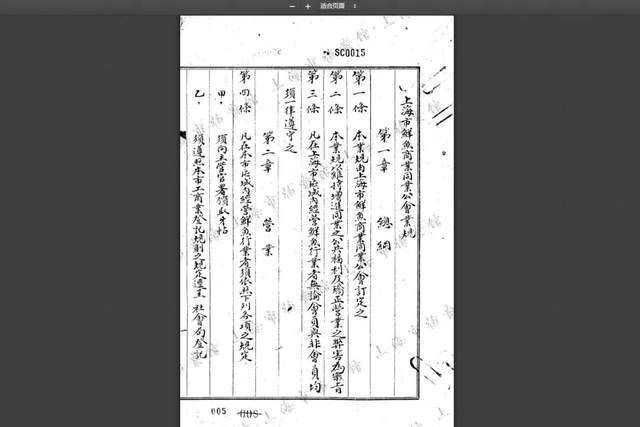 适合页面
SC0015
上海市鮮魚商業同業公會業規
第一章 總綱
第一條 本業規由上海市鮮魚商業同業公會訂定之
第二條 本業規以維持增進同業之公共福利及矯正營業之弊害為宗旨
第三條 凡在上海市區域內經營鮮魚行業者無論會員與非會員均
須一律遵守之
第二章 營業
第四條 凡在本市區域內經營鮮魚行業者須依照下列各項之規定
甲、須向主管官署領取牙帖
乙、須遵照本市工商業登記規則之規定遵呈 社會局登記
005
005